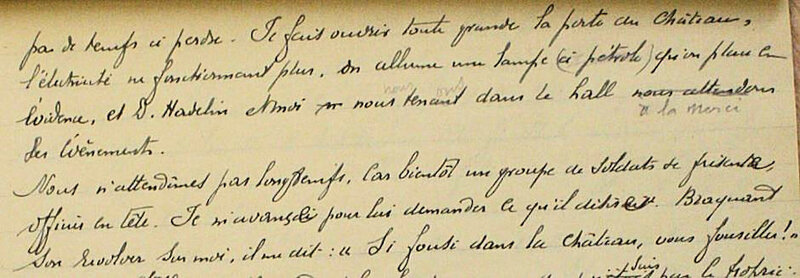 pas de temps à perdre. Je fais ouvrir toute grande la porte du Château,
l'électricité ne fonctionnant plus, on allume une lampe (à pétrole) qu'on place en
évidence, et D. Hadelin et moi nous tenant dans le hall nous attendons
à la merci
des évènements.
Nous n'attendîmes pas longtemps, car bientôt un groupe de soldats se présenta,
officier en tête. Je m'avançai pour lui demander ce qu'il désirait. Braquant
son revolver sur moi, il me dit : « Si fousi dans la château, vous fousiller ! »
suis